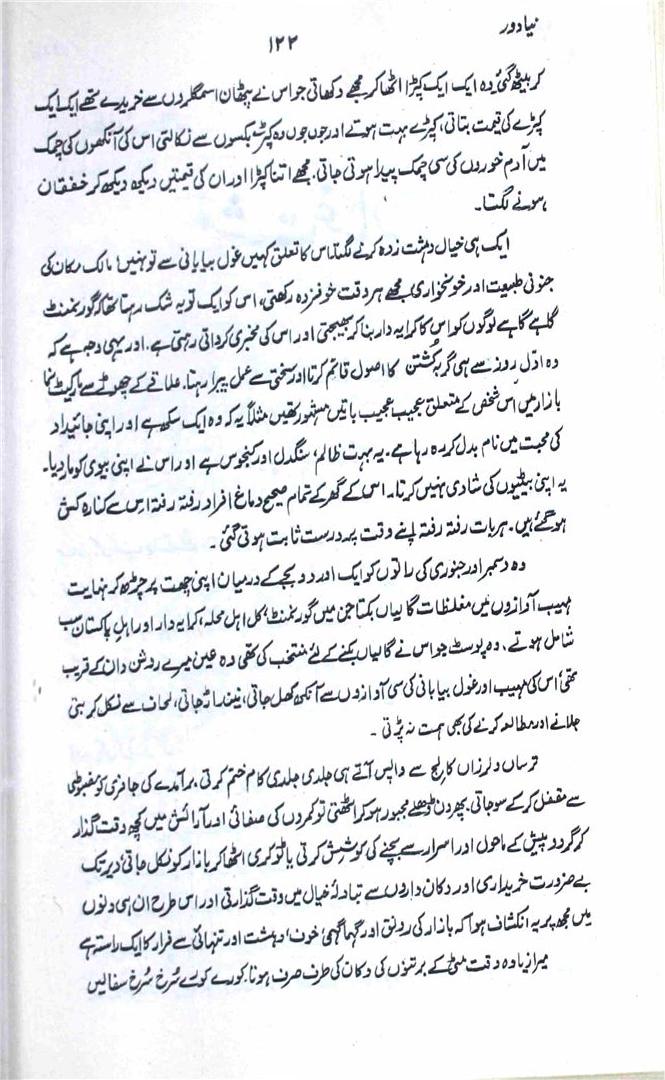 نیا دور
۱۲۲
کر بیٹھ گئی وہ ایک ایک کپڑا اٹھا کر مجھے دکھاتی جو اس نے پٹھان اسمگلروں سے خریدے تھے ایک ایک
کپڑے کی قیمت بتاتی، کپڑے بہت ہوتے اور جوں جوں وہ کپڑے بکسوں سے نکالتی اس کی آنکھوں کی چمک
میں آدم خوروں کی سی چمک پیدا ہوتی جاتی. مجھے اتنا کپڑا اور ان کی قیمتیں دیکھ دیکھ کر خفقان
ہونے لگتا۔
ایک ہی خیال دہشت زدہ کرنے لگتا، اس کا تعلق کہیں غول بیابانی سے تو نہیں! مالک مکان کی
جنونی طبیعت اور خونخواری مجھے ہر وقت خوفزدہ رکھتی، اس کو ایک تو یہ شک رہتا تھا کہ گورنمنٹ
گاہے گاہے لوگوں کو اس کا کرایہ دار بنا کر بھیجتی اور اس کی مخبری کرواتی رہتی ہے. اور یہی وجہ ہے کہ
وہ اوّل روز سے ہی گربہ کُشتن کا اصول قائم کرتا اور سختی سے عمل پیرا رہتا. علاقے کے چھوٹے سے مارکیٹ نما
بازار میں اس شخص کے متعلق عجیب عجیب باتیں مشہور تھیں مثلاً یہ کہ وہ ایک سکھ ہے اور اپنی جائیداد
کی محبت میں نام بدل کر رہ رہا ہے. یہ بہت ظالم، سنگدل اور کنجوس ہے اور اس نے اپنی بیوی کو مار دیا۔
یہ اپنی بیٹیوں کی شادی نہیں کرتا۔ اس کے گھر کے تمام صحیح دماغ افراد رفتہ رفتہ اس سے کنارہ کش
ہو گئے ہیں. ہر بات رفتہ رفتہ اپنے وقت پر درست ثابت ہوتی گئی۔
وہ دسمبر اور جنوری کی راتوں کو ایک اور دو بجے کے درمیان اپنی چھت پر چڑھ کر نہایت
مہیب آوازوں میں مغلظات گالیاں بکتا جن میں گورنمنٹ، کل اہل محلہ، کرایہ دار اور اہلِ پاکستان سب
شامل ہوتے، وہ پوسٹ جو اس نے گالیاں بکنے کے لئے منتخب کی تھی وہ عین میرے روشن دان کے قریب
تھی، اس کی مہیب اور غول بیابانی کی سی آوازوں سے آنکھ کھل جاتی، نیند اڑ جاتی، لحاف سے نکل کر بتی
جلانے اور مطالعہ کرنے کی بھی ہمت نہ پڑتی۔
ترساں و لرزاں کالج سے واپس آتے ہی جلدی جلدی کام ختم کرتی. برآمدے کی جافری کو مضبوطی
سے مقفل کر کے سو جاتی. پھر دن ڈھلے مجبور ہو کر اٹھتی تو کمروں کی صفائی اور آرائش میں کچھ وقت گذار
کر گردوپیش کے ماحول اور اسرار سے بچنے کی کوشش کرتی یا ٹوکری اٹھا کر بازار کو نکل جاتی، دیر تک
بے ضرورت خریداری اور دکان داروں سے تبادلۂ خیال میں وقت گذارتی اور اس طرح ان ہی دنوں
میں مجھ پر یہ انکشاف ہوا کہ بازار کی رونق اور گہما گہمی، خوف، دہشت اور تنہائی سے فرار کا ایک راستہ ہے
میرا زیادہ وقت مٹی کے برتنوں کی دکان کی طرف صرف ہوتا. کورے کورے سُرخ سُرخ سفالیں